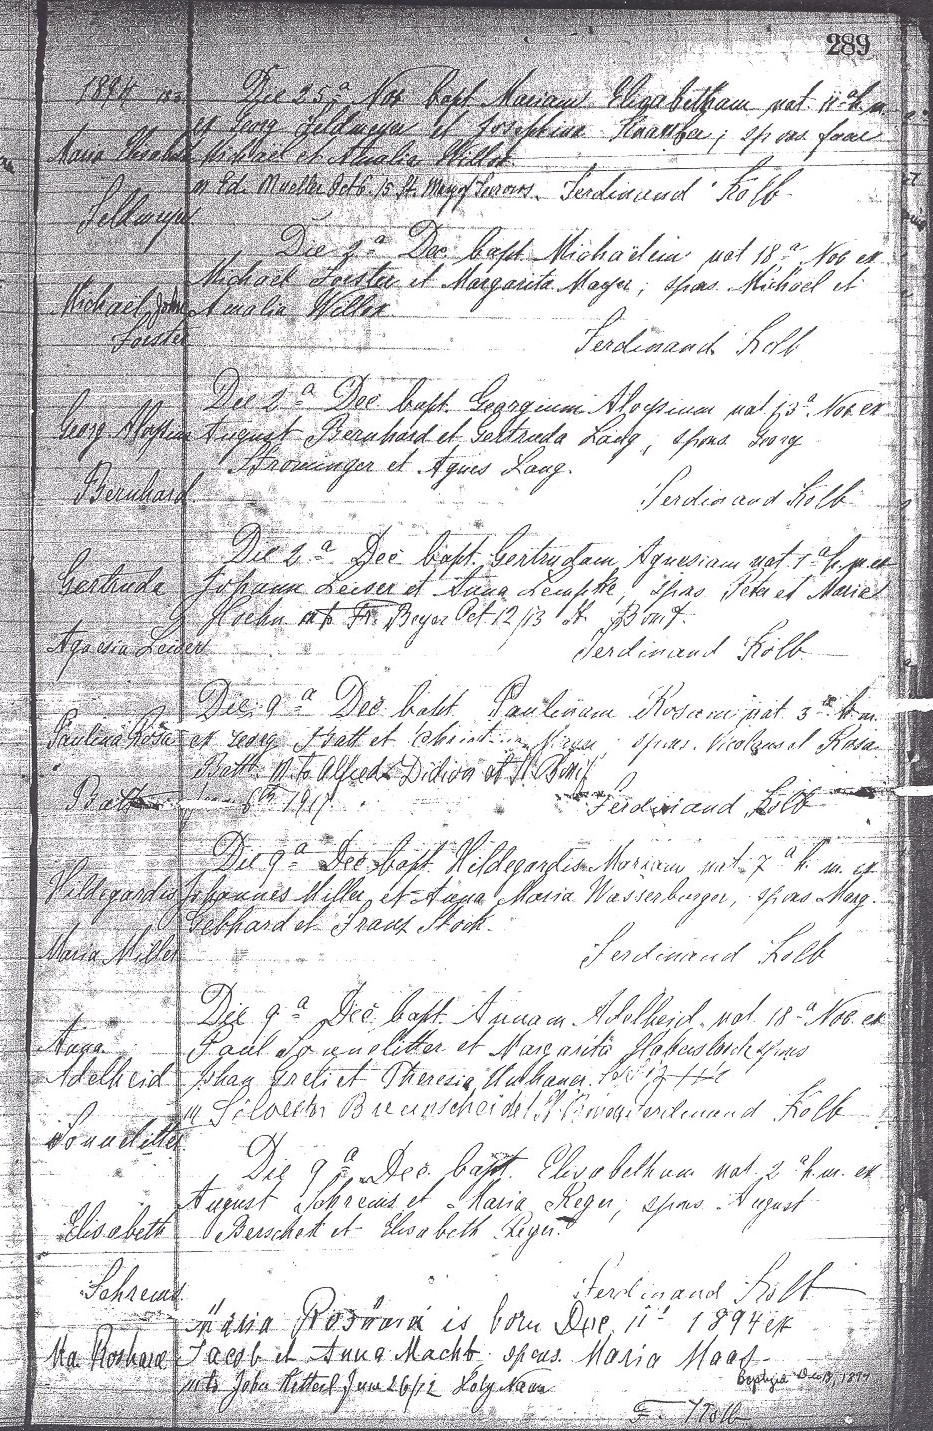 289
1894
Die 25ª Nov bapt Mariam Elizabetham nat 11ª h. m.
ex Georg Feldmeyer et Josephina ; spons
Maria Elisabeth
Michael et Amalia Willox
m Ed. Mueller Oct 6. 15 St. Mary of Sorrows. Ferdinand Kolb
Feldmeyer
Die 2ª Dec bapt Michaelem nat 18ª Nov ex
Michael Foester et Margarita Mayer, spons. Michael et
Michael John
Amalia Willox
Foester
Ferdinand Kolb
Die 2ª Dec bapt. Georgium Aloysium nat 13ª Nov. ex
Georg Aloysius
August Bernhard et Gertruda Lang, spons Georg
Strominger et Agnes Lang.
Bernhard
Ferdinand Kolb
Die 2ª Dec bapt. Gertrudam Agnesiam nat 1ª h. m ex
Gertruda
Johann Leiser et Anna Lempke, spons Peter et Maria
Hoehn m to Fr. Beyer Oct 12/13 St Bonif.
Agnesia Leiser
Ferdinand Kolb
Die 9ª Dec bapt Paulinam Rosam nat 3ª h. m.
Paulina Rosa
ex Georg Batt et spons. Nicolaus et Rosa
Batt. m to Alfred Didion at St. Bonif
Batt
6th 1917.
Ferdinand Kolb
Die 9ª Dec bapt Hildegardis Mariam nat 7ª h. m. ex
Hildegardis
Johannes Miller et Anna Maria Wasserburger, spons Marg.
Gebhard et Franz Stock.
Maria Miller
Ferdinand Kolb
Die 9ª Dec. bapt. Annam Adelheid nat 18ª Nov. ex
Anna
Paul Sonnelitter et Margarita spons
Adelheid
Johan et Theresia
m Silvester Ferdinand Kolb
Sonnelitter
Die 9ª Dec. bapt. Elisabetham nat 2ª h. m. ex
August Schrems et Maria Reger, spons August
Elisabeth
Berschek et Elisabeth Reger.
Schrems
Ferdinand Kolb
Maria Rosina is born Dec 11 1894 ex
Ma. Roshara
Jacob et Anna Macht spons. Maria Maas
m to John June 26/12 Holy Name
F. Kolb